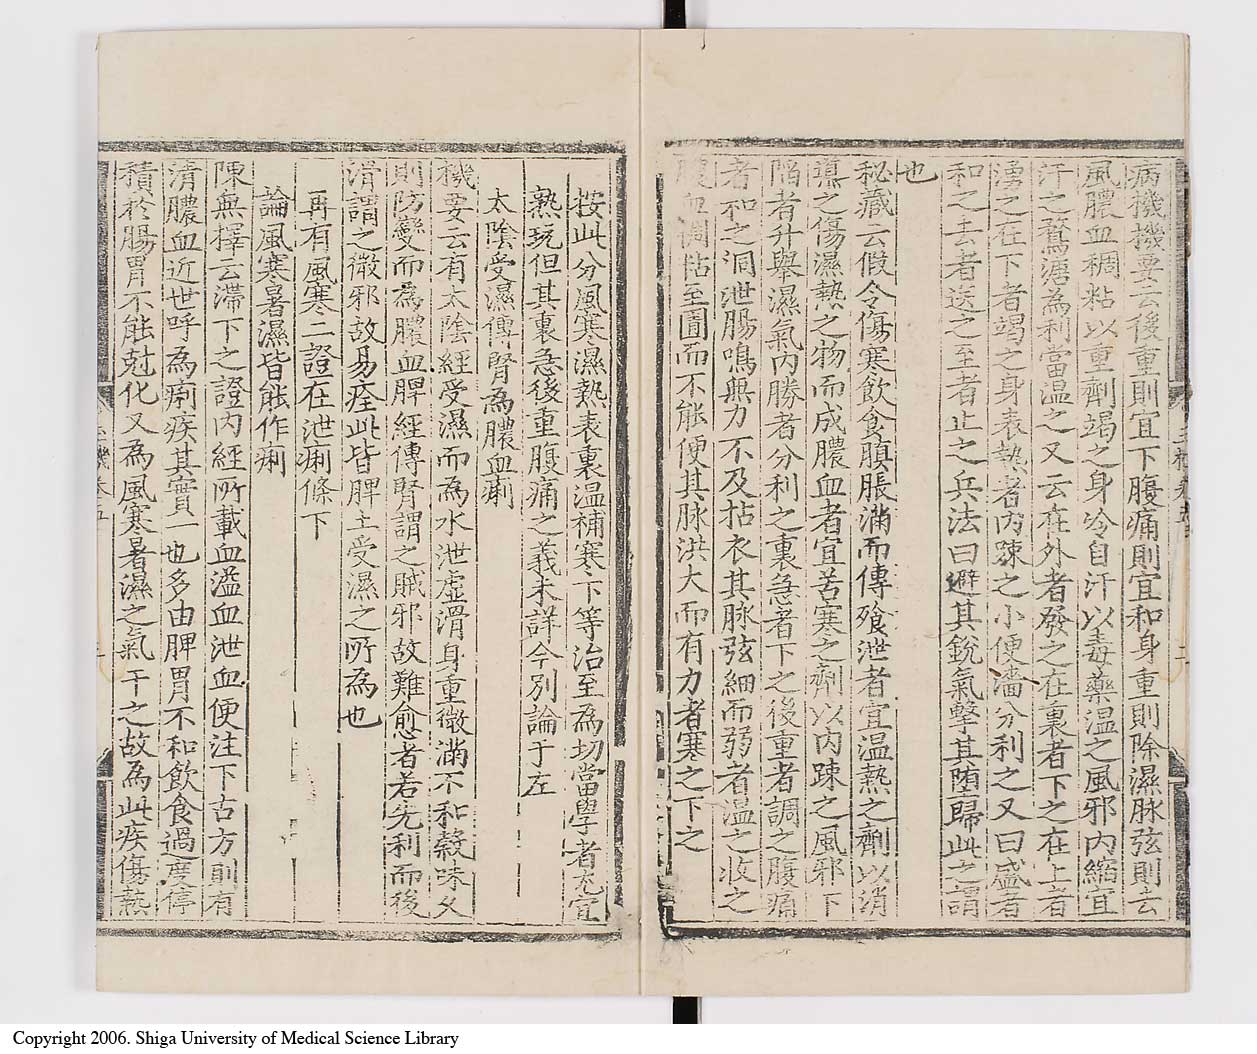 病機機要云後重則宜下腹痛則宜和身重則除濕脉弦則去
風膿血稠粘以重劑竭之身冷自汗以毒藥温之風邪内縮宜
汗之鶩溏為利當温之又云在外者發之在裏者下之在上者
湧之在下者竭之身表熱者内踈之小便濇分利之又曰盛者
和之去者送之至者止之兵法曰避其銳氣擊其墮歸此之謂
也
秘藏云假令傷寒飲食䐜脹滿而傳飱泄者宜温熱之劑以消
導之傷濕熱之物而成膿血者宜苦寒之劑以内踈之風邪下
陷者升舉濕氣内勝者分利之裏急者下之後重者調之腹痛
者和之洞泄腸鳴無力不及拈衣其脉弦細而弱者温之收之
膿血稠粘至圊而不能便其脉洪大而有力者寒之下之
按此分風寒濕熱表裏温補寒下等治至為切當學者尤宜
熟玩但其裏急後重腹痛之義未詳今别論于左
太陰受濕傳腎為膿血痢
機要云有太陰經受濕而為水泄虛滑身重微滿不和穀味久
則防變而為膿血脾經傳腎謂之賊邪故難愈者若先利而後
滑謂之微邪故易痊此皆脾主受濕之所為也
再有風寒二證在泄痢條下
論風寒暑濕皆能作痢
陳無擇云滯下之證内經所載血溢血泄血便注下古方則有
清膿血近世呼為痢疾其實一也多由脾胃不和飲食過度停
積於腸胃不能尅化又為風寒暑濕之氣干之故為此疾傷熱
Copyright 2006. Shiga University of Medical Science Library